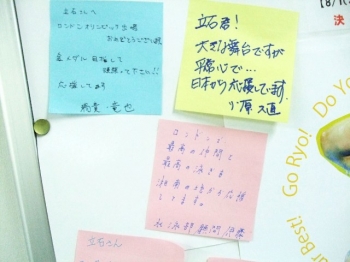 立石さんへ
ロンドンオリンピック出場
おめでとうございます
金メダル目指して
頑張って下さい!!
応援してます
竜也
立石君!
大きな舞台ですが
平常心で…
日本から応援してます。
小原
ロンドン
最高の仲間と
最高の泳ぎを
湘南の地から応援
してます。
水泳部顧問
立石さん
Best! Go Ryo! Do Yo
[8/1(
決